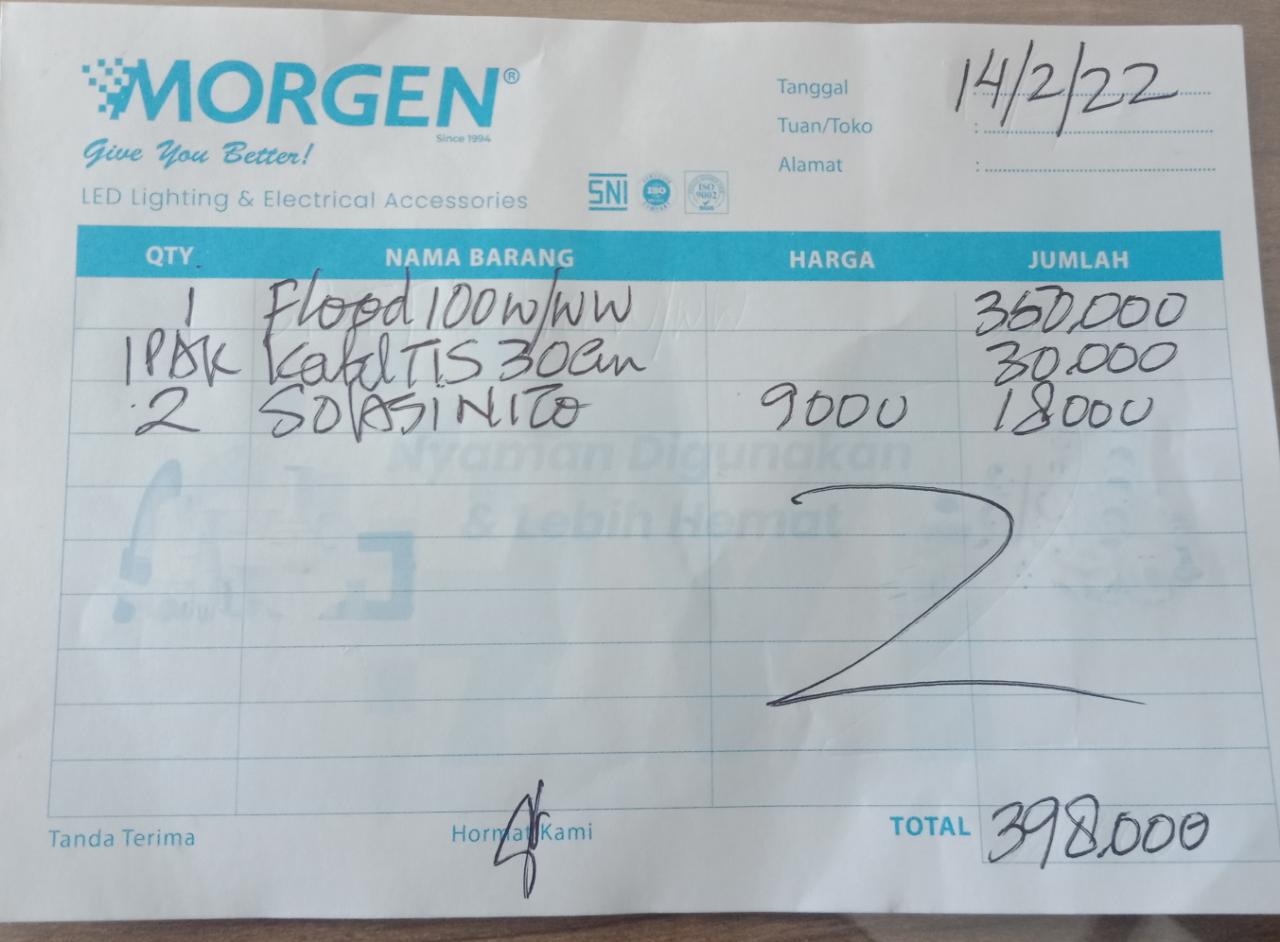 MORGEN®
Since 1994
Give You Better!
LED Lighting & Electrical Accessories
SNI ISO ISO 9002
Tanggal : 14/2/22
Tuan/Toko :
Alamat :
QTY NAMA BARANG HARGA JUMLAH
1 Flood 100W/WW 350.000
1 PAK Kabel TIS 30cm 30.000
2 SOLASI NITO 9000 18000
Nyaman Digunakan
& Lebih Hemat
Tanda Terima Hormat Kami TOTAL 398.000